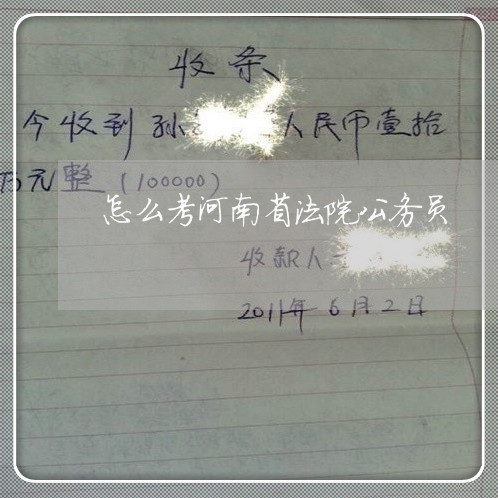 收条
今收到孙 人民币壹拾
万元整(100000)
怎么考河南省法院公务员
收款人
2011年6月2日